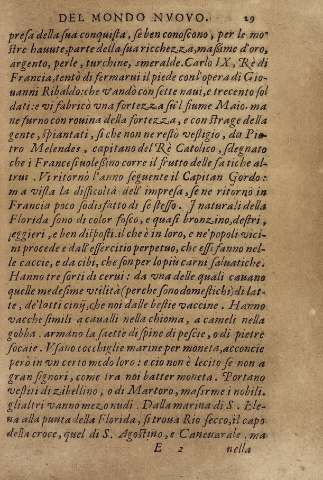 DEL MONDO NVOVO. 29
presa della sua conquista, se ben conoscono, per le mo-
stre hauute, parte della sua ricchezza, massime d'oro,
argento, perle, turchine, smeralde. Carlo IX, Rè di
Francia, tentò di fermarui il piede con l'opera di Gio-
uanni Ribaldo: che v'andò con sette naui, e trecento sol
dati: e vi fabricò vna fortezza sù'l fiume Maio. ma
ne furno con rouina della fortezza, e con strage della
gente, spiantati, si che non ne restò vestigio, da Pie
tro Melendes, capitano del Rè Catolico, sdegnato
che i Francesi volessino corre il frutto delle fatiche al-
trui. Vi ritornò l'anno seguente il Capitan Gordo:
ma vista la difficoltà dell'impresa, se ne ritornò in
Francia poco sodisfatto di se stesso. I naturali della
Florida sono di color fosco, e quasi bronzino, destri,
leggieri, e ben disposti. il che è in loro, e ne' popoli vici-
ni procede e dall'essercitio perpetuo, che essi fanno nel-
le caccie, e da cibi, che son per lo più carni saluatiche.
Hanno tre sorti di cerui: da vna delle quali cauano
quelle medesime vtilità (perche sono domestichi) di lat-
te, de' lotti cinij, che noi dalle bestie vaccine. Hanno
vacche simili a caualli nella chioma, a cameli nella
gobba. armano la saette di spine di pescie, o di pietre
focaie. Vsano cocchiglie marine per moneta, acconcie
però in vn certo modo loro: e cio non è lecito se non a
gran signori, come tra noi batter moneta. Portano
vestiti di zibellino, o di Martoro, massime i nobili.
gli altri vanno mezo nudi. Dalla marina di S. Ele-
na alla punta della Florida, si troua Rio secco, il capo
della croce, quel di S. Agostino, e Caneuarale. ma
E 2 nella